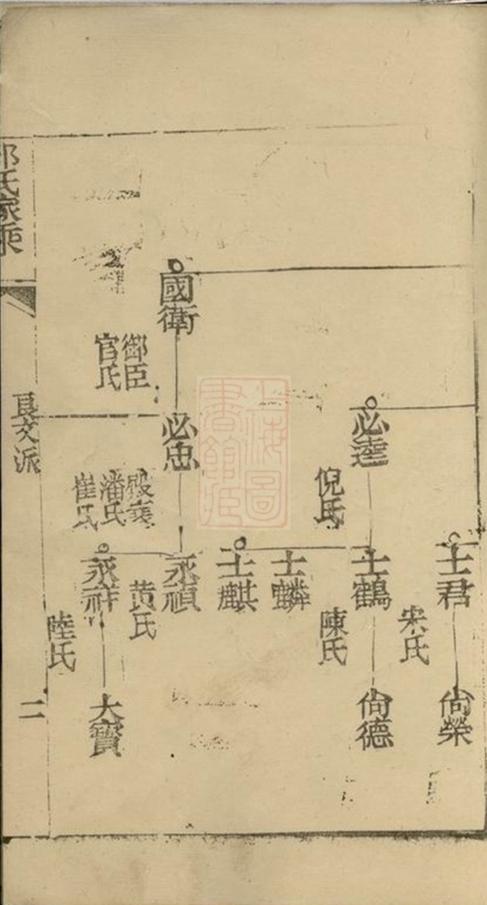 士君
宋氏
尙榮
必達
倪氏
士鶴
陳氏
尙德
士麟
士麒
國衛
御臣
官氏
必忠
殿襄
潘氏
崔氏
永禎
黄氏
永祥
陸氏
大寶
氏家乘
長文派
二